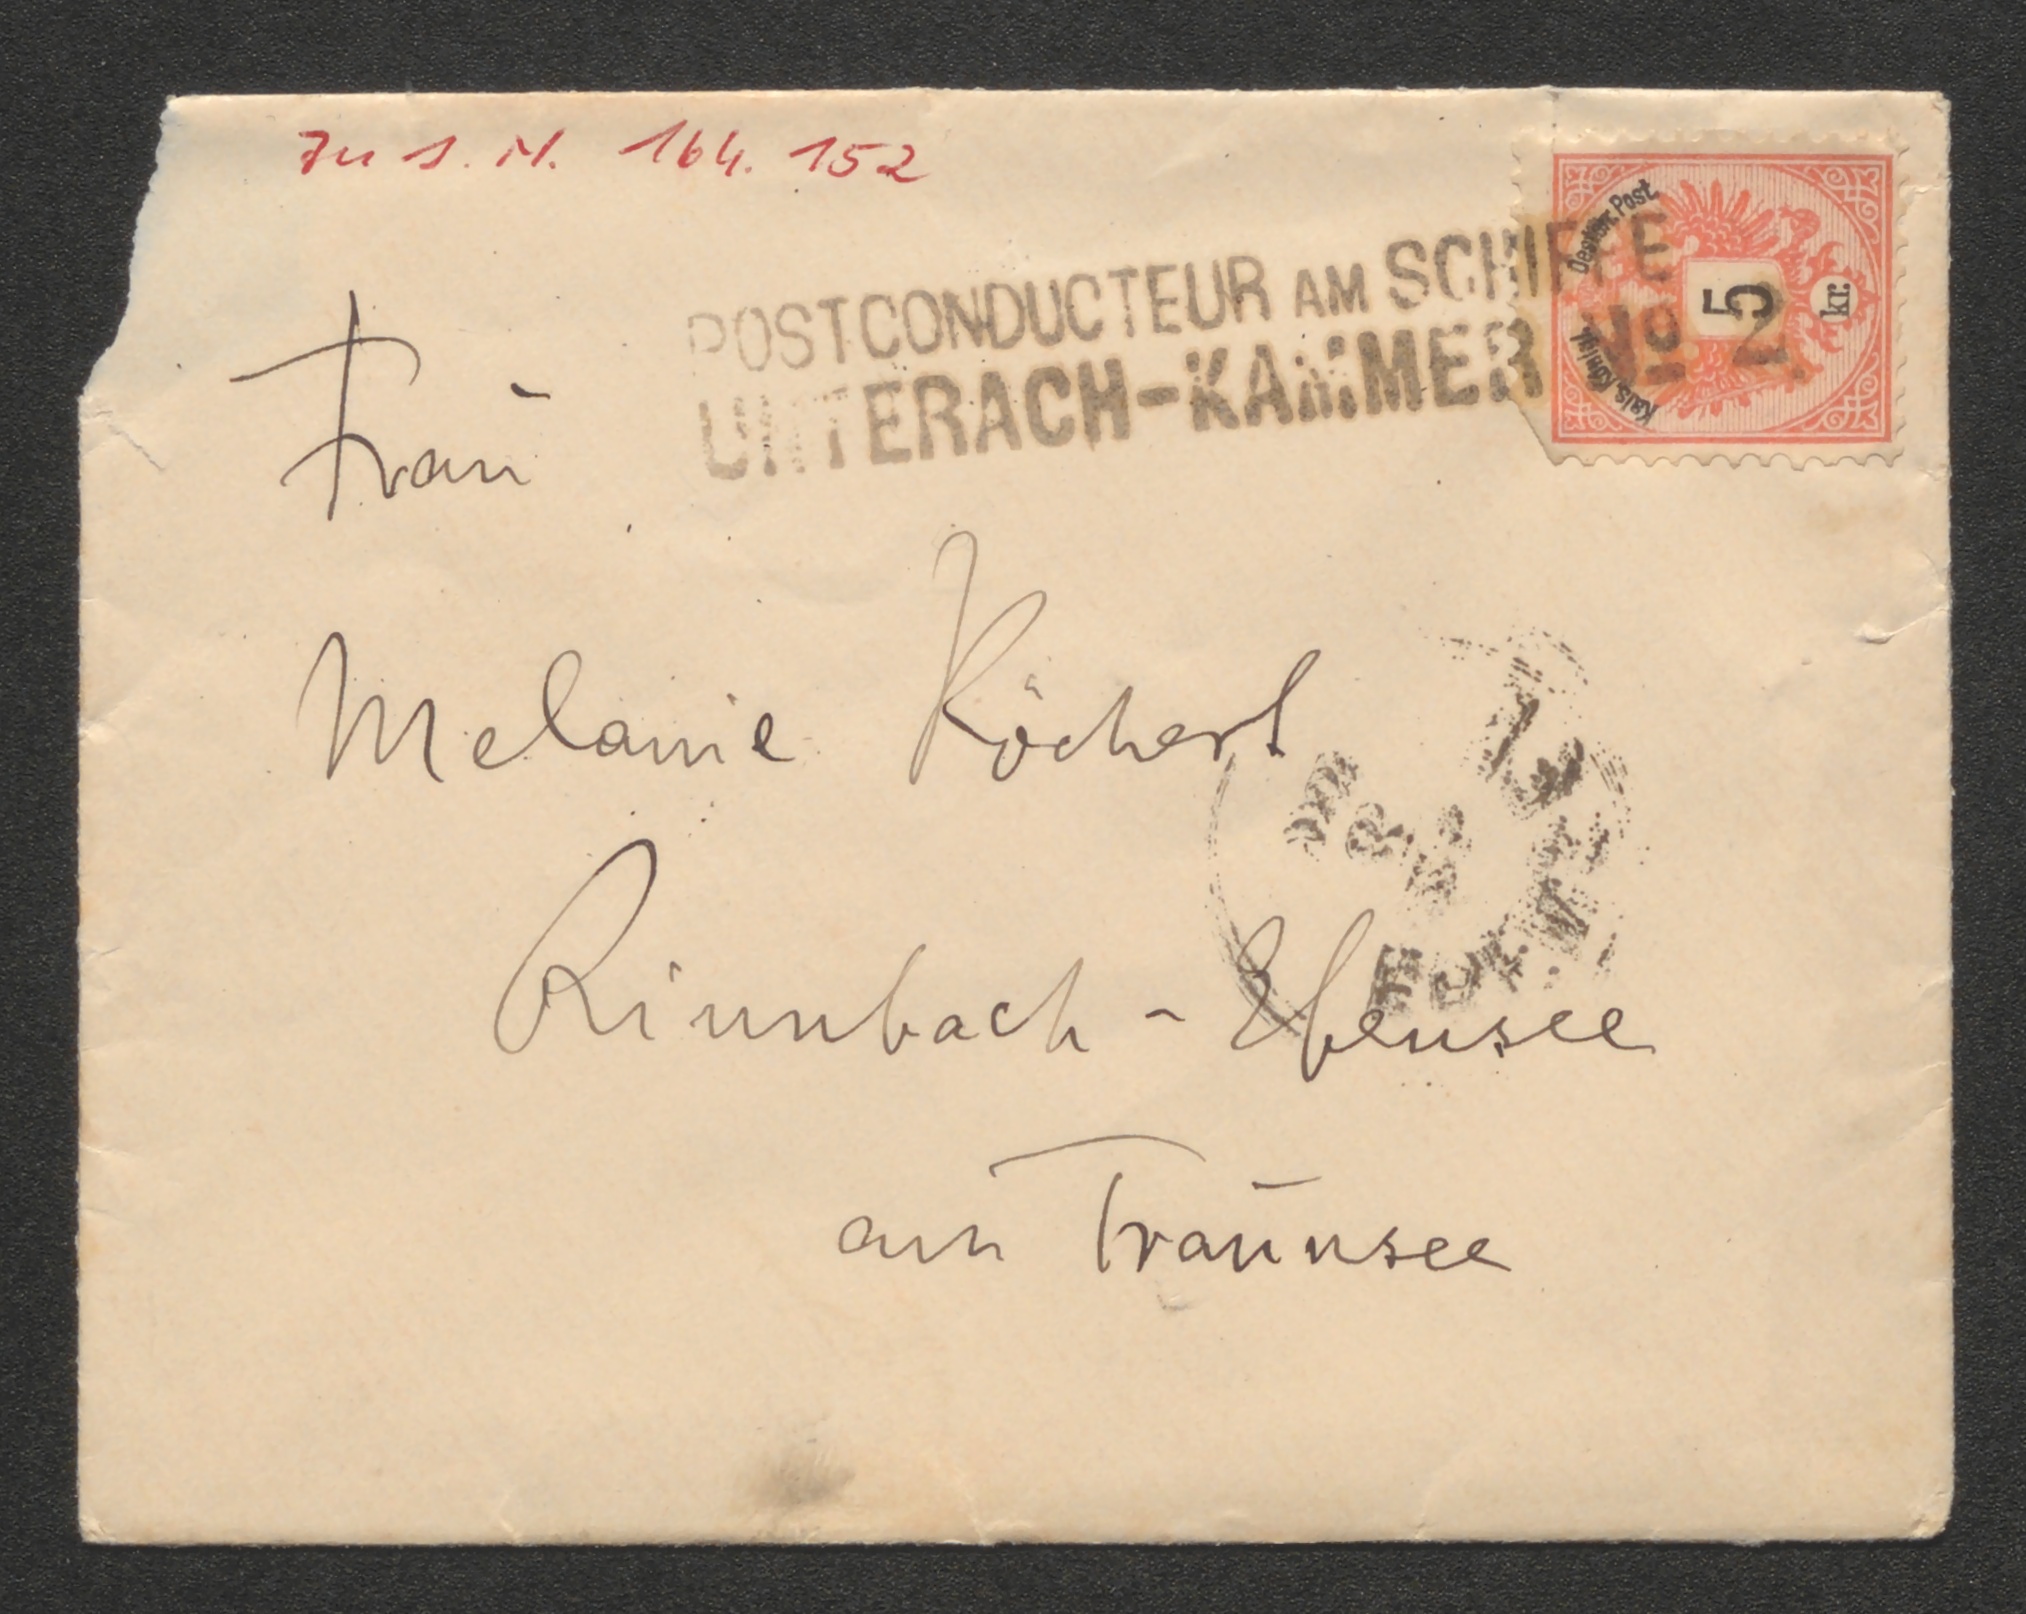 Zu I. N. 164.152
Kais. Königl. Oesterr. Post
5
kr.
POSTCONDUCTEUR AM SCHIFFE
UNTERACH-KAMMER No 2
Frau
Melanie Köchert
Rinnbach - Ebensee
am Traunsee